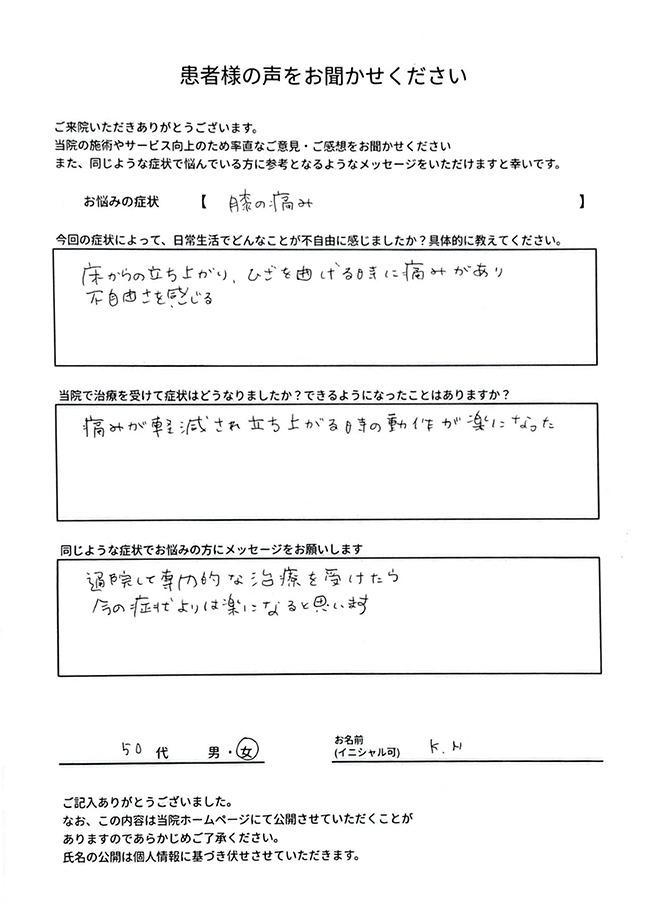 患者様の声をお聞かせください
ご来院いただきありがとうございます。
当院の施術やサービス向上のため率直なご意見・ご感想をお聞かせください
また、同じような症状で悩んでいる方に参考となるようなメッセージをいただけますと幸いです。
お悩みの症状 【 膝の痛み 】
今回の症状によって、日常生活でどんなことが不自由に感じましたか？具体的に教えてください。
床からの立ち上がり、ひざを曲げる時に痛みがあり
不自由さを感じる
当院で治療を受けて症状はどうなりましたか？できるようになったことはありますか？
痛みが軽減され立ち上がる時の動作が楽になった
同じような症状でお悩みの方にメッセージをお願いします
通院して専門的な治療を受けたら
今の症状よりは楽になると思います
50 代 男・女
お名前
(イニシャル可) K.N
ご記入ありがとうございました。
なお、この内容は当院ホームページにて公開させていただくことが
ありますのであらかじめご了承ください。
氏名の公開は個人情報に基づき伏せさせていただきます。